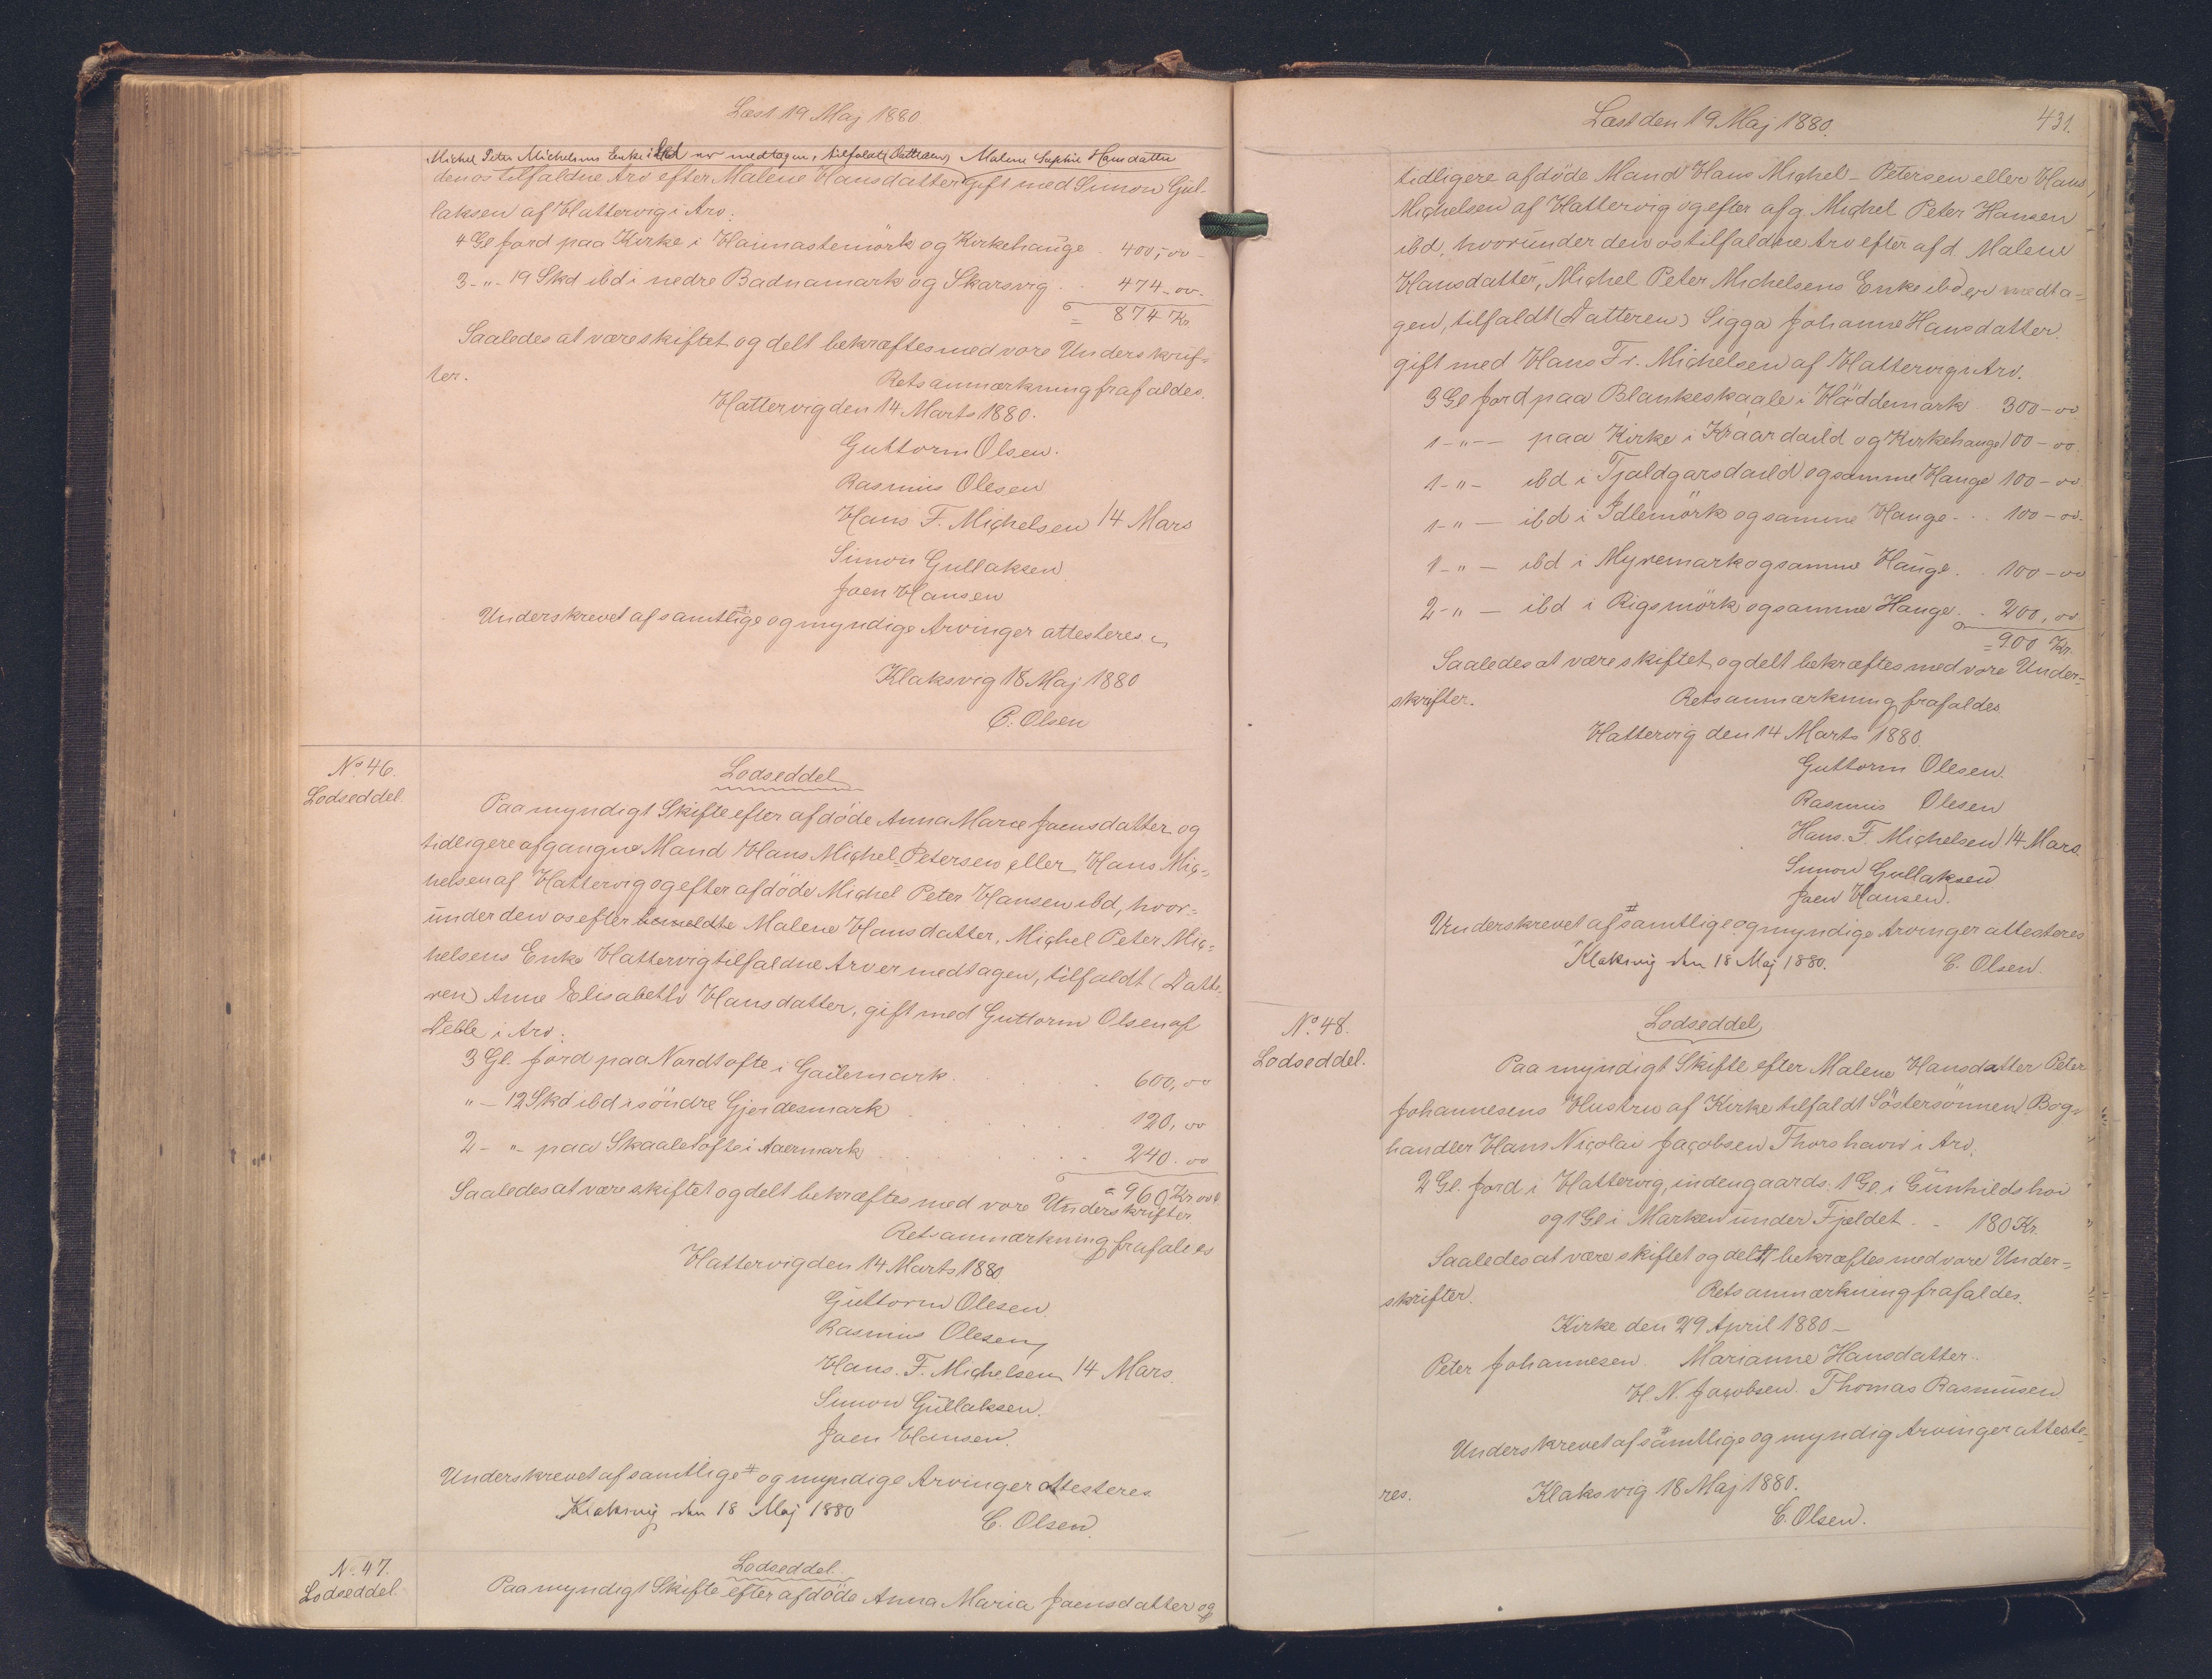 Læst 19 Maj 1880
Michel Peter Michelsens Enke ibd er medtagen, tilfaldt (Datteren) Malene Sophie Hansdatter
den os tilfaldne Arv efter Malene Hansdatter gift med Simon Gul-
laksen af Hattervig i Arv:
4 Gl Jord paa Kirke i Hainnastemörk og Kirkehauge . 400,00
3 - " - 19 Skd ibd i nedre Badnamark og Skarsvig . . 474-00-
= 874 Kr
Saaledes at være skiftet og delt bekræftes med vore Underskrif-
ter.
Retsanmærkning frafaldes.
Hattervig den 14 Marts 1880.
Guttorm Olsen.
Rasmus Olesen
Hans F. Michelsen 14 Mars
Simon Gullaksen
Joen Hansen
Underskrevet af samtlige og myndige Arvinger attesteres.
Klaksvig 18 Maj 1880
C. Olsen
No 46.
Lodseddel.
Lodseddel
Paa myndigt Skifte efter afdöde Anna Marie Joensdatter og
tidligere afgangne Mand Hans Michel-Petersen eller Hans Mic-
helsen af Hattervig og efter afdöde Michel Peter Hansen ibd, hvor-
under den os efter bemeldte Malene Hansdatter, Michel Peter Mic-
helsens Enke Hattervig tilfaldne Arv er medtagen, tilfaldt (Datte-
ren) Anne Elisabeth Hansdatter, gift med Guttorm Olsen af
Deble i Arv:
3 Gl. Jord paa Nordtofte i Gailemark . . . 600,00
" - 12 Skd ibd i söndre Gjerdesmark . . . 120,00
2 - " - paa Skaaletofte i Aaermark . . . 240.00
= 960 Kr 00
Saaledes at være skiftet og delt bekræftes med vore Underskrifter
Retsanmærkning frafaldes
Hattervig den 14 Marts 1880.
Guttorm Olesen
Rasmus Olesen
Hans. F. Michelsen 14 Mars.
Simon Gullaksen.
Joen Hansen.
Underskrevet af samtlige # og myndige Arvinger attesteres
Klaksvig den 18 Maj 1880
C. Olsen.
No. 47.
Lodseddel.
Lodseddel.
Paa myndigt Skifte efter afdöde Anna Maria Joensdatter og
Læst den 19 Maj 1880.
431.
tidligere afdöde Mand Hans Michel-Petersen eller Hans
Michelsen af Hattervig og efter afg. Michel Peter Hansen
ibd, hvorunder den os tilfaldne Arv efter afd. Malene
Hansdatter, Michel Peter Michelsens Enke ibd er medta-
gen, tilfaldt (Datteren) Sigga Johanne Hansdatter.
gift med Hans Fr. Michelsen af Hattervig i Arv.
3 Gl Jord paa Blankeskaale i Höddemark 300-00
1 - " - - paa Kirke i Kraardaild og Kirkehauge 100-00.
1 - " - ibd i Tjaldgarsdaild og samme Hauge 100-00
1 - " - ibd i Idlemörk og samme Hauge . . 100-00.
1 - " - ibd i Myremark og samme Hauge . . 100-00
2 - " - ibd i Rigsmörk og samme Hauge . . 200,00
= 900 Kr.
Saaledes at være skiftet og delt bekræftes med vore Under-
skrifter.
Retsanmærkning frafaldes.
Hattervig den 14 Marts 1880.
Guttorm Olesen.
Rasmus Olesen
Hans. F. Michelsen 14 Mars.
Simon Gullaksen
Joen Hansen.
Underskrevet af # samtlige og myndige Arvinger attesteres
Klaksvig den 18 Maj 1880.
C. Olsen.
No. 48.
Lodseddel.
Lodseddel
Paa myndigt Skifte efter Malene Hansdatter Peter
Johannesens Hustru af Kirke tilfaldt Söstersönnen Bog-
handler Hans Nicolai Jacobsen Thorshavn i Arv.
2 Gl. Jord i Hattervig, indengaards: 1 Gl. i Gunhildshöi
og 1 Gl i Marken under Fjeldet . . 180 Kr.
Saaledes at være skiftet og delt bekræftes med vore Under-
skrifter.
Retsanmærkning frafaldes.
Kirke den 29 April 1880-
Peter Johannesen. Marianne Hansdatter.
H. N. Jacobsen. Thomas Rasmusen
Underskrevet af samtlige og myndig Arvinger atteste-
res.
Klaksvig 18 Maj 1880.
C. Olsen.